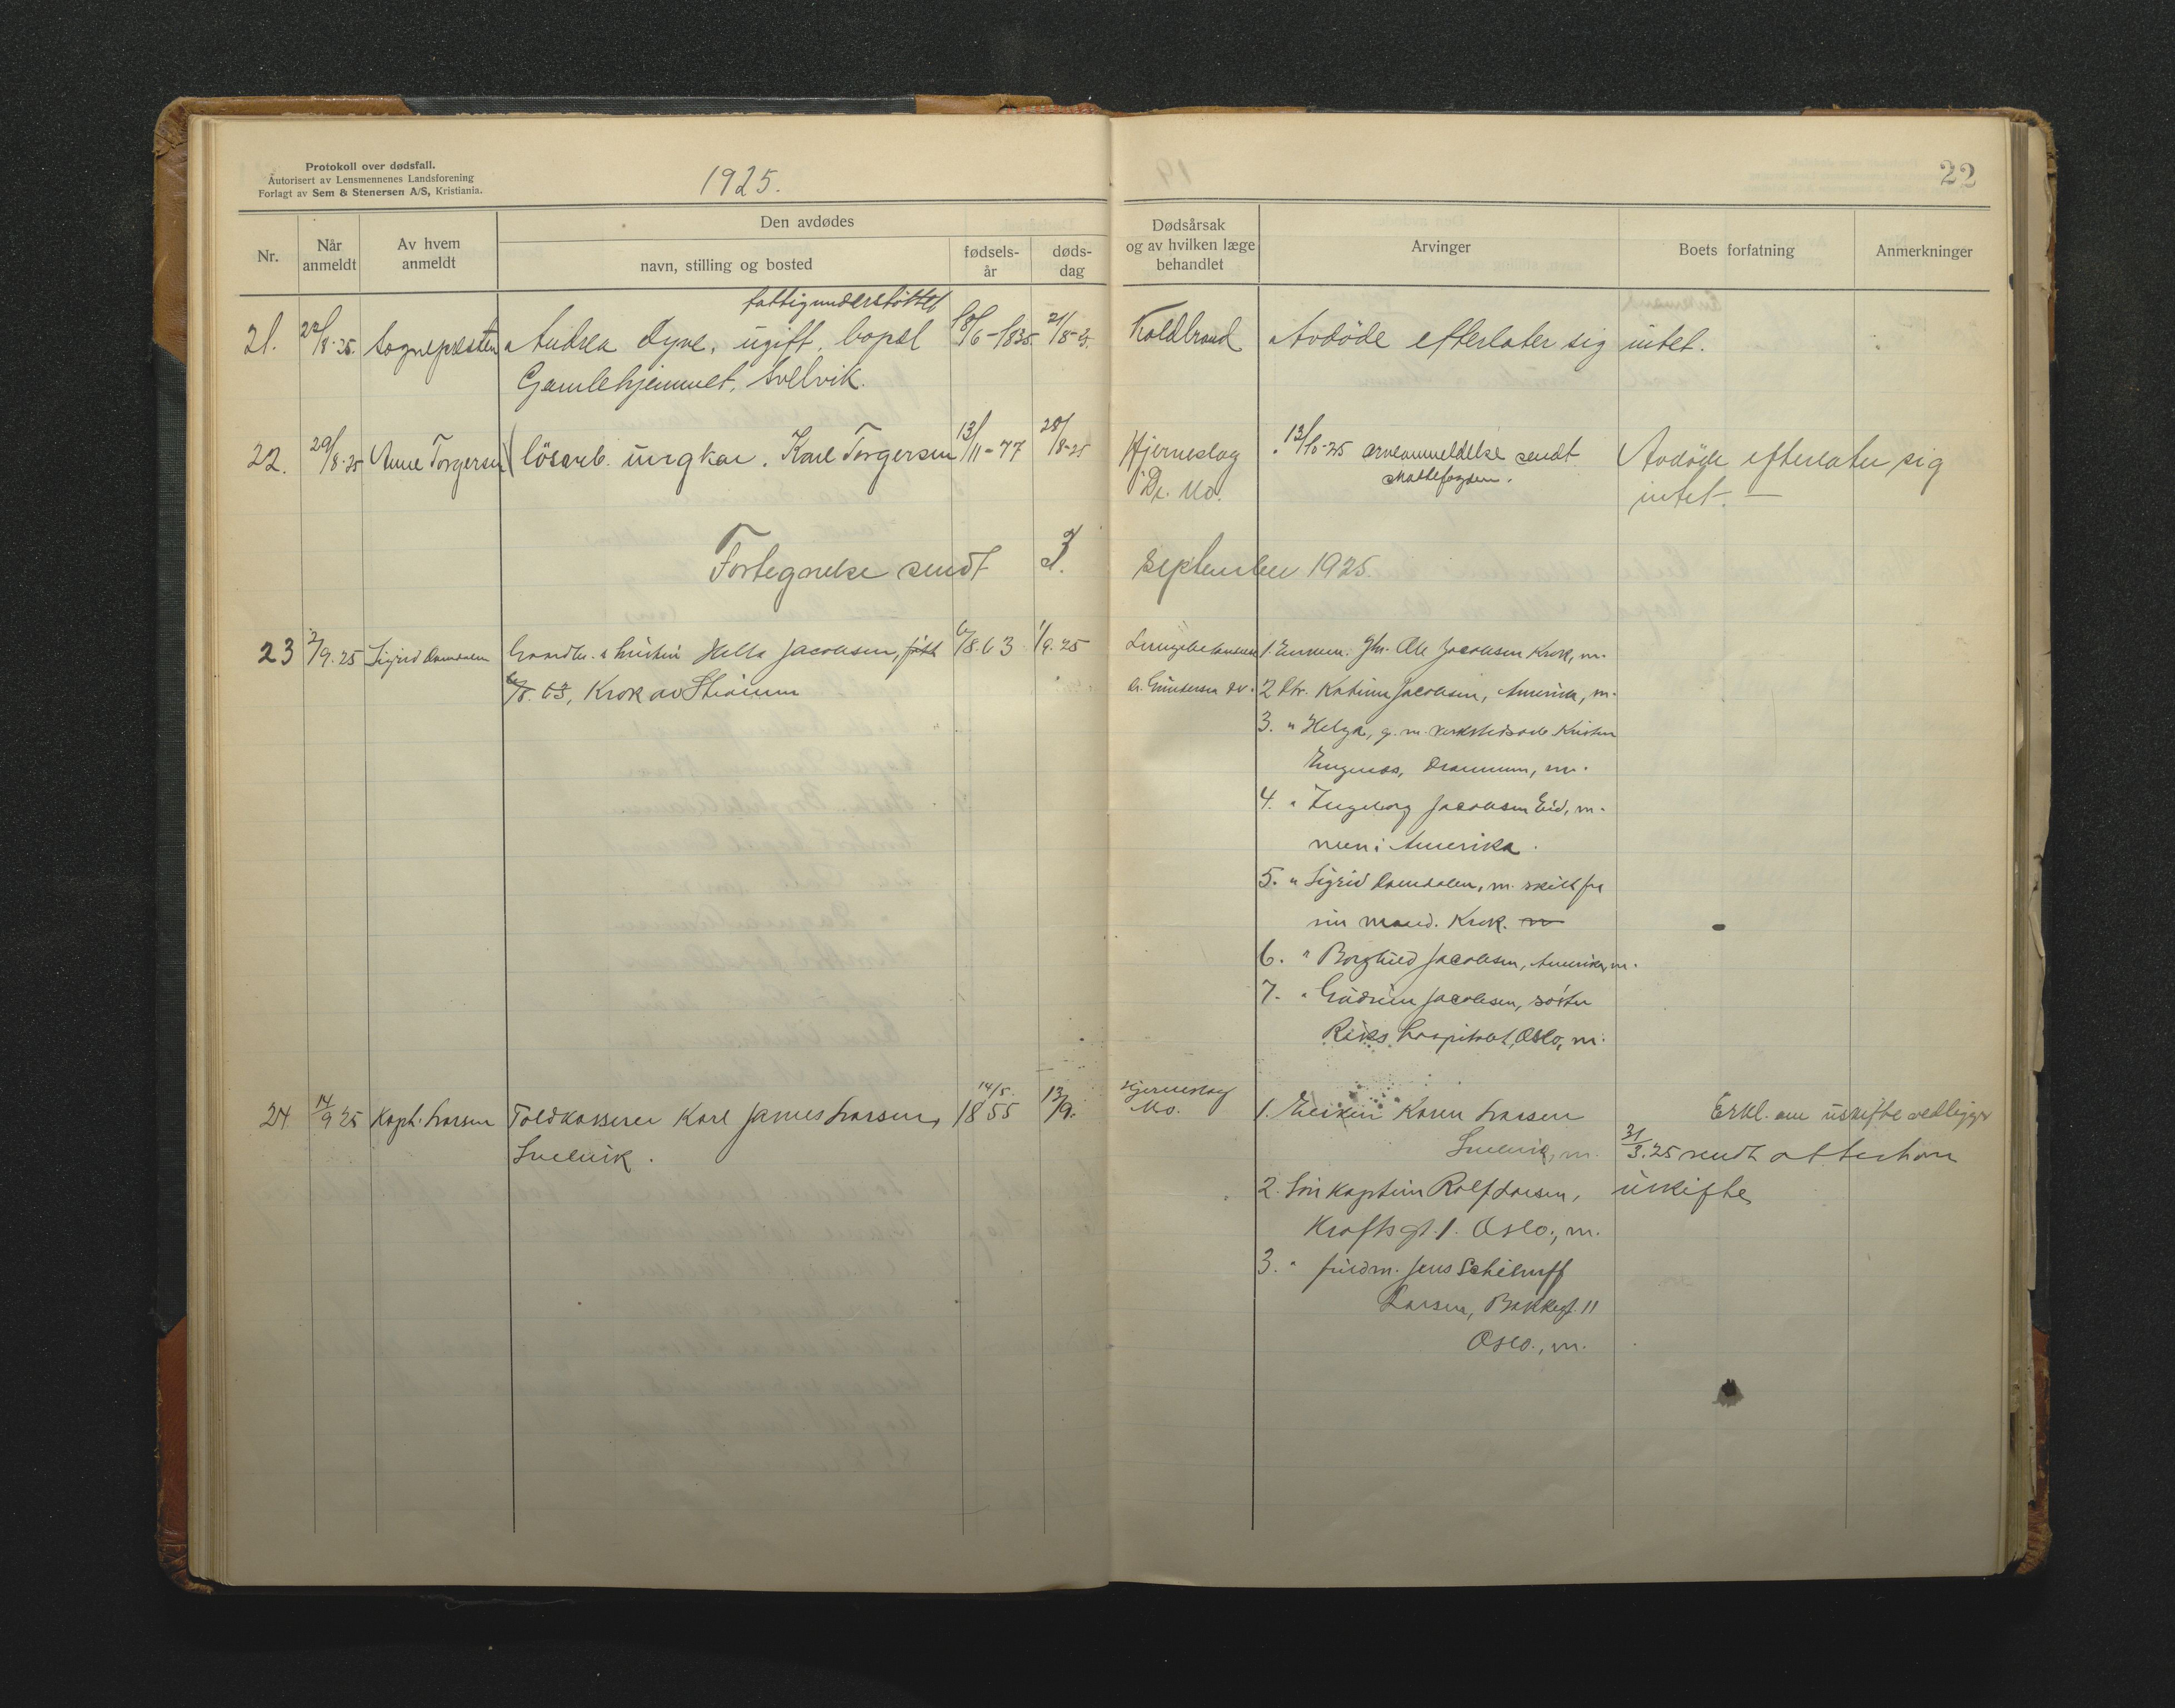 Protokoll over dødsfall.
Autorisert av Lensmennenes Landsforening
Forlagt av Sem & Stenersen A/S, Kristiania.
1925.
22
Nr.
Når anmeldt
Av hvem anmeldt
Den avdødes
navn, stilling og bosted
fødsels-år
døds-dag
Dødsårsak og av hvilken læge behandlet
Arvinger
Boets forfatning
Anmerkninger
fattigunderstöttet
21. 22/8-25. Sognepresten Andrea Dyve, ugift, bopæl 18/6-1835 21/8-25. Koldbrand Avdöde efterlater sig intet.
Gamlehjemmet, Svelvik.
22. 29/8-25 Anne Torgersen lösarb. ungkar. Karl Torgersen 13/11-77 28/8-25 Hjerneslag 12/10-25 arveanmeldelse sendt Avdöde efterlater sig
Dr. Mo. Skattefogden. intet.
Fortegnelse sendt d. 3/ September 1925.
23 2/9.25 Sigrid Hella Jacobsen, født 6/8.63 1/9.25 1. Ole Jacobsen Krok, m.
6/8.63, Krok av Strömm 2 Jacobsen, Amerika, m.
3. " Helga, g. m.
m.
4. " Ingeborg Jacobsen Eid, m.
men i Amerika.
5. " Sigrid m. skilt fra
sin mand. Krok. m
6. " Borghild Jacobsen, Amerika, m.
7. " Gudrun Jacobsen, søster
Riks hospitalet, Oslo, m.
24 14/9 25 Kapt. Larsen Toldkasserer Karl James Larsen, 14/5. 1855 13/9. Hjerneslag 1. Enken Karen Larsen Erkl. om uskifte vedligger
Svelvik. Mo. Svelvik, m. 31/3.25 sendt attest om
2. Sön Kaptein Rolf Larsen, uskifte
Krafts gt. 1. Oslo., m.
3. " Jens
Larsen, Bakkegt. 11
Oslo., m.